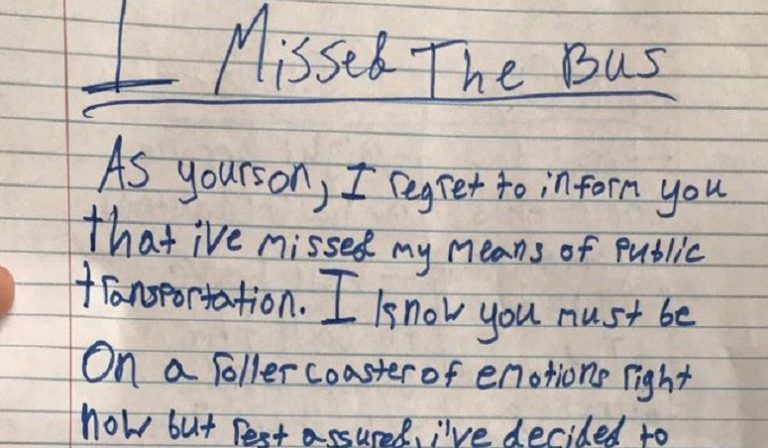 I Missed The Bus
As yourson, I regret to inform you
that ive missed my means of public
transportation. I know you must be
On a roller coaster of emotions right
now but rest assured, i've decided to